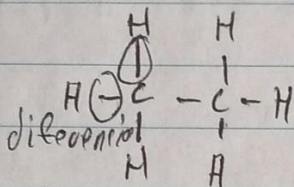 H H
H - C - C - H
diferencial
H H